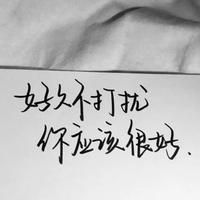 好久不打扰
你应该很好.